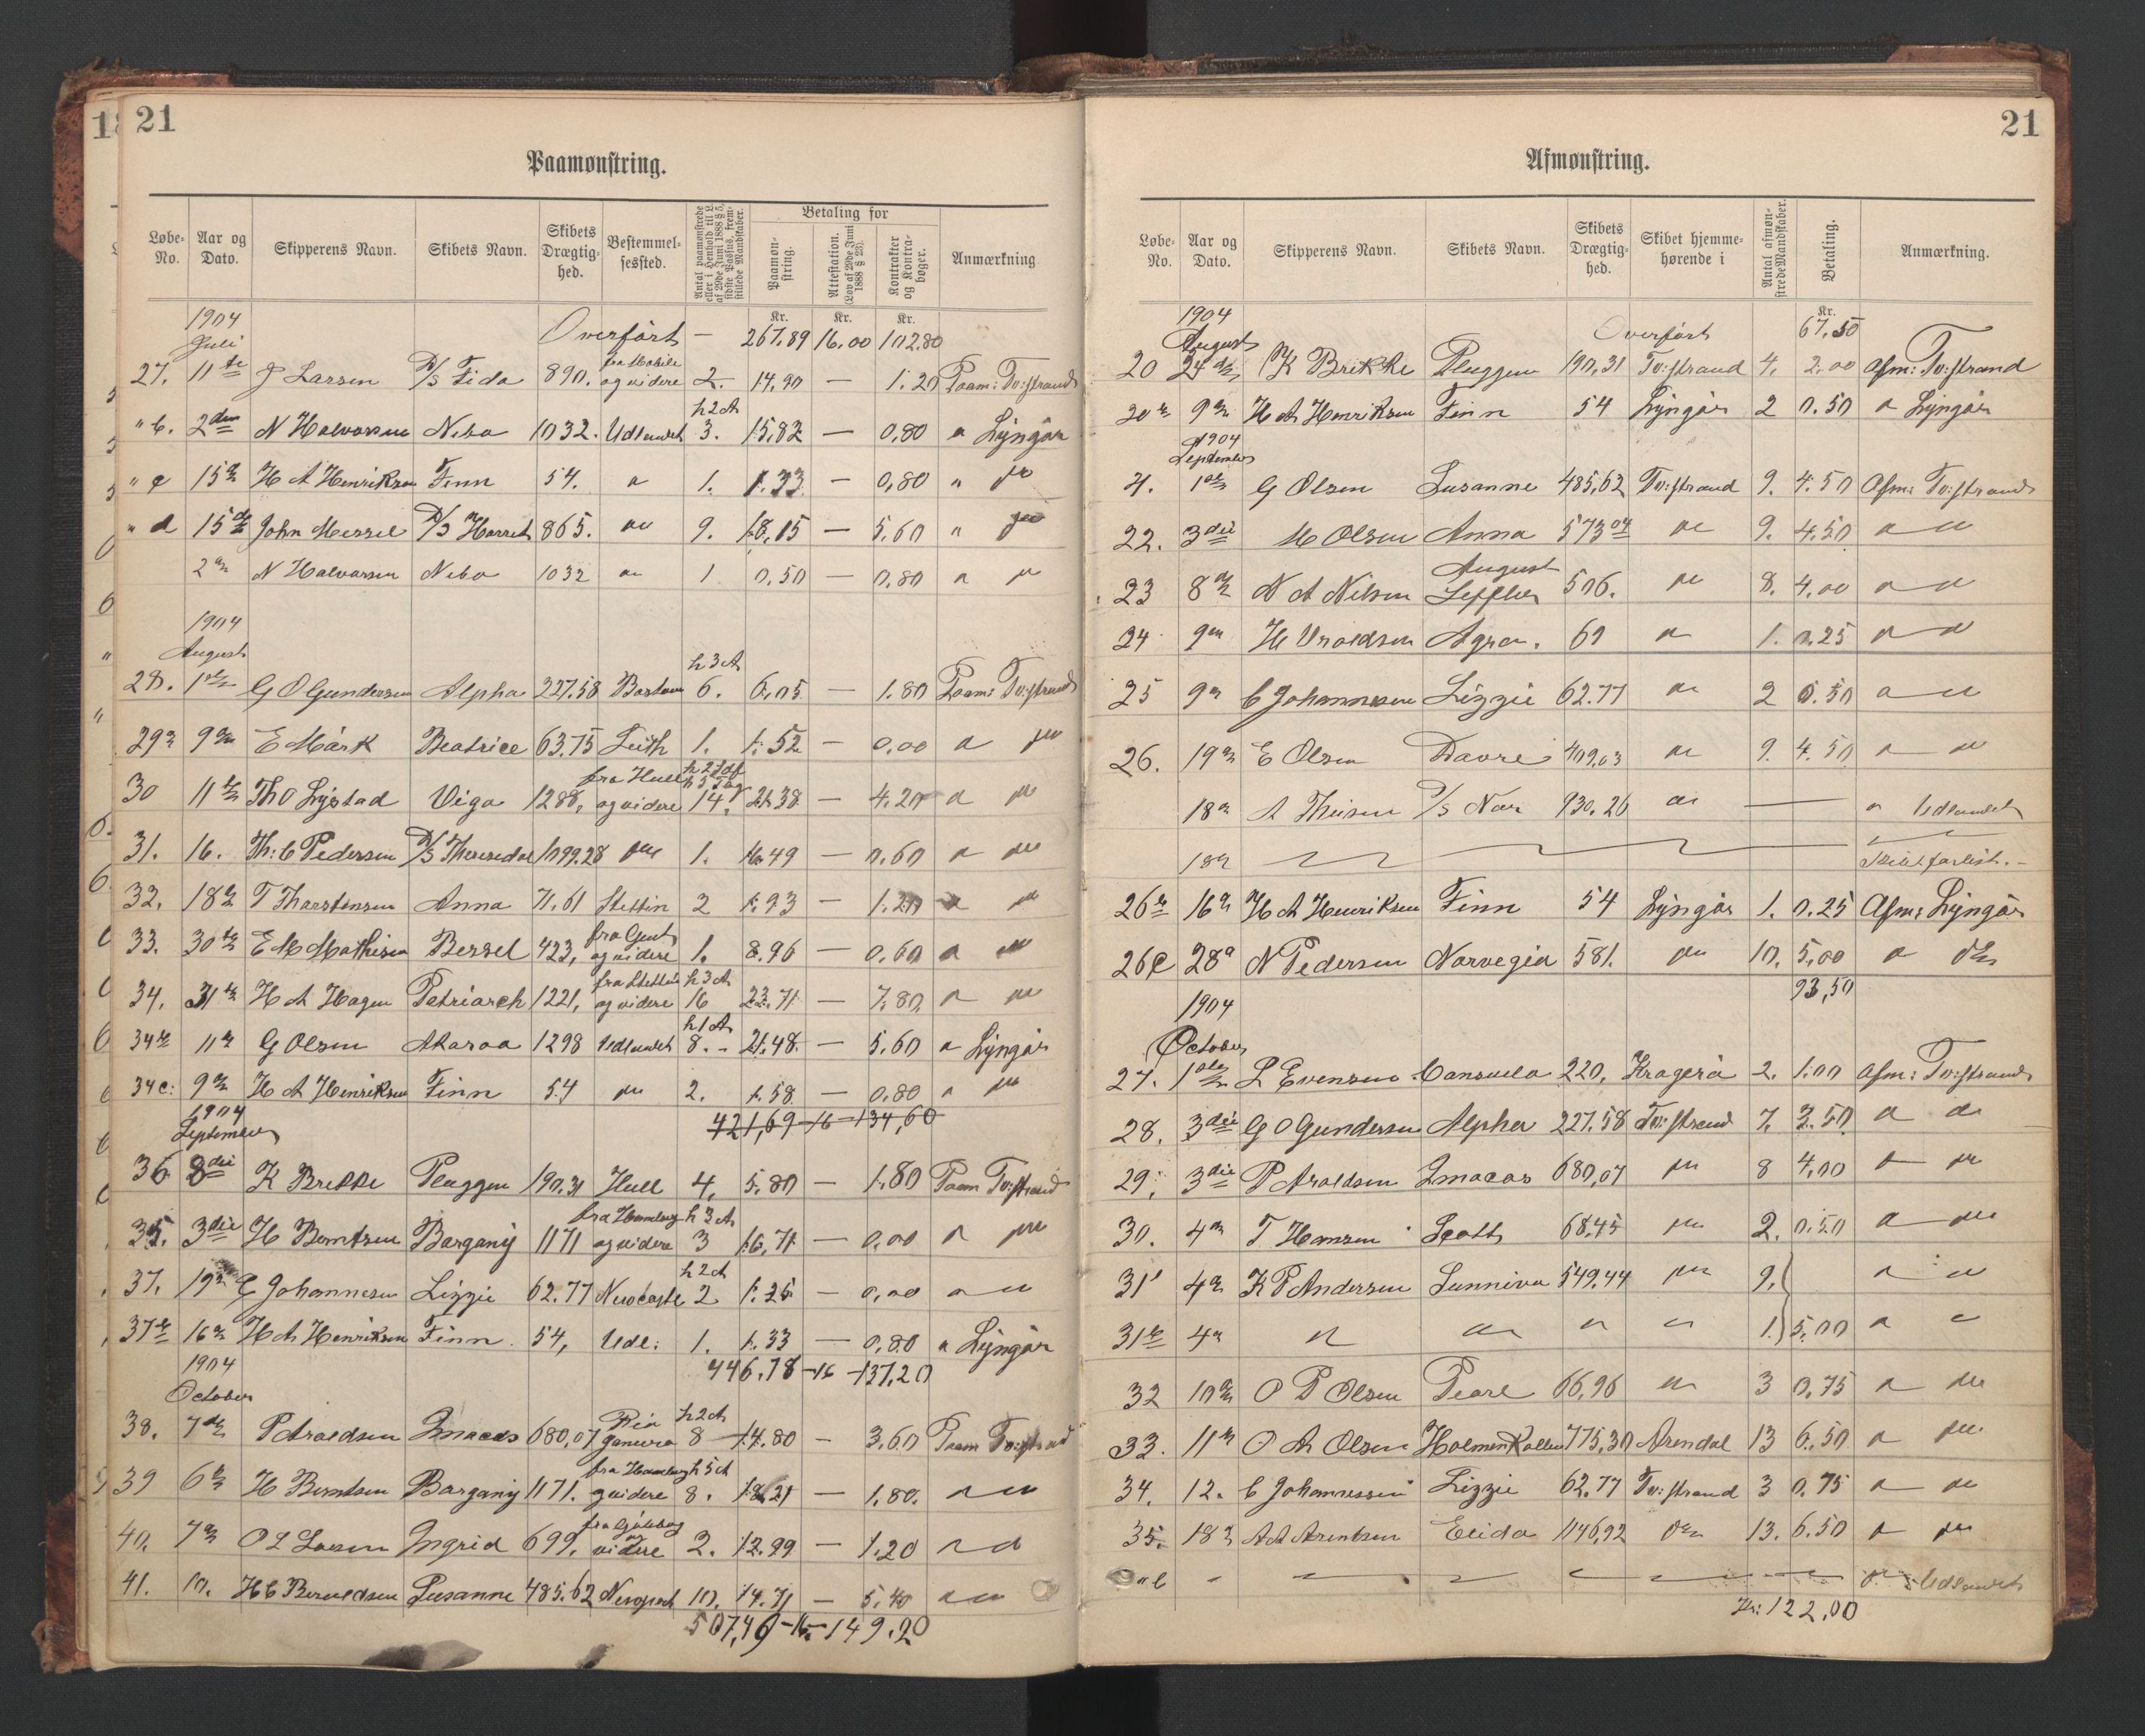 21
Paamønstring.
Løbe-No. Aar og Dato. Skipperens Navn. Skibets Navn. Skibets Drægtighed. Bestemmelsessted. Antal paamønstrede eller i Henhold til L. af 29de Juni 1888 § 5, sidste Passus, fremstillede Mandskaber. Betaling for Paamønstring. Attestation. (Lov af 29de Juni 1888 § 23). Kontrakter og Kontrabøger. Anmærkning
Kr. Kr. Kr.
1904 Juli Overført — 267,89 16.00 102.80
27. 11te J Larsen D/S Fida 890. fra Mobile og videre 2. 14,90 — 1.20 Paam: Tv:strand
" b. 2den N Halvorsen Nebo 1032. Udlandet h 2 A 3. 15,82 — 0,80 " Lyngør
" c 15 H A Henriksen Finn 54. " 1. 1.33 — 0,80 "
" d 15de John Messel D/S 865. 9. 18,15 — 5,60 "
2 N Halvorsen Nebo 1032 1 0,50 — 0,80 "
1904
August
28. 1ste G O Gundersen Alpha 227.58 h 3 A 6. 6,05 — 1.80 Paam: Tv:strand
29 9 E Mørk Beatrice 63.75 Leith 1. 1.52 — 0,00 "
30 11te Th O Lystad Viga 1288, fra Hull og videre 14, 21.38 — 4.20 "
31. 16. Th: C Pedersen D/S 1099.28 1. 16.49 — 0.60 "
32. 18 T Thorstensen Anna 71.61 Stettin 2 1.93 — 1.20 "
33. 30te E M Mathisen Bessel 423, fra Gent og videre 1. 8.96 — 0,60 "
34. 31te H A Hagen Patriarch 1221, fra Stettin og videre h 3 A 16 23.71 — 7.80 "
34b 11 G Olsen Akaroa 1298 Udlandet h 1 A 8. 21.48. — 5,60 " Lyngør
34c. 9 H A Henriksen Finn 54 2. 1.58 — 0.80 "
1904 421,69 - 16 - 134,60
September
36 8de K Brekke Pluggen 190.31 Hull 4, 5.80 — 1.80 Paam Tv:strand
35. 3die H Berntsen Bargany 1171 fra Hamburg og videre h 3 A 3 16,71 — 0,00 "
37. 19 C Johannesen Lizzie 62.77 Newcastle h 2 A 2 1.25 — 0,00 "
37b 16 H A Henriksen Finn 54, Udl: 1. 1.33 — 0,80 " Lyngør
1904 446,78 - 16 - 137,20
October
38. 7de P Aroldsen Imacos 680,07 h 2 A 8 14.80 — 3,60 Paam Tv:strand
39 6te H Berntsen Bargany 1171. fra Hamburg og videre h 5 A 8. 18.21 — 1.80. "
40. 7 O L Larsen Ingrid 699, og videre 2. 12.99 — 1.20 "
41. 10. H C Beraldsen Susanne 485.62 Newport 10. 14.71 — 5.40 "
507,49 - 16 - 149.20
21
Afmønstring.
Løbe-No. Aar og Dato. Skipperens Navn. Skibets Navn. Skibets Drægtighed. Skibet hjemmehørende i Antal afmønstrede Mandskaber. Betaling. Anmærkning.
Kr.
1904 August Overført 67.50
20 24de K Brekke Pluggen 190,31 Tv:strand 4. 2.00 Afm: Tv:strand
20b 9 H A Henriksen Finn 54 Lyngør 2 0.50 " Lyngør
1904
September
21. 1ste G Olsen Susanne 485,62 Tv:strand 9. 4.50 Afm: Tv:strand
22. 3die M Olsen Anna 573 04 9. 4.50 "
23 8de N A Nilsen August Leffler 506. 8. 4.00 "
24 9 H Uroldsen Agra. 69 1. 0.25 "
25 9 C Johannesen Lizzie 62.77 2 0.50 "
26. 19 E Olsen Davre 409,03 9. 4.50 "
18 A Theisen D/S 930.26 — " Udlandet
18
26b 16 H A Henriksen Finn 54 Lyngør 1. 0.25 Afm: Lyngør
26c 28 N Pedersen Norvegia 581. 10. 5,00 "
93,50
1904
October
27. 1ste L Evensen Consuelo 220, Kragerø 2. 1.00 Afm: Tv:strand
28. 3die G O Gundersen Alpha 227.58 Tv:strand 7. 3.50 "
29. 3die P Aroldsen Imacos 680,07 8 4,00 "
30. 4 T Hansen Scott 68.45 2. 0.50 "
31 4 K P Andersen Sunniva 549.44 9. "
31b 4 " " " " 1. 5.00 "
32 10 O P Olsen Pearl 66,96 3 0,75 "
33. 11 O A Olsen Holmenkollen 775,30 Arendal 13 6.50 "
34. 12. C Johannessen Lizzie 62.77 Tv:strand 3 0.75 "
35. 18 A A Arentsen Elida 1146,92 13. 6.50 "
" b — — — — — — — Udlandet
Kr: 122.00